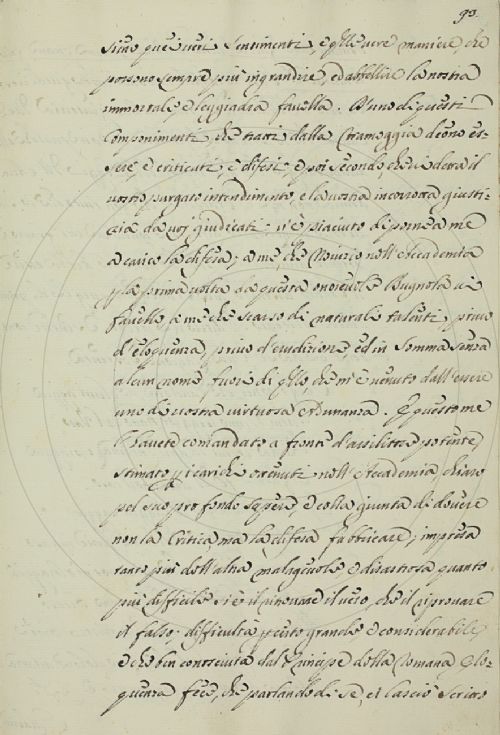 93.
siene que' veri sentimenti, e q̃lle vere maniere, che
possono sempre più ingrandire, ed abbellire la nostra
immortale, e leggiadra favella. A uno di questi
Componimenti, che tratti dalla Tramoggia deono es-
sere, e criticati, e difesi, e poi secondo che vi detta il
vostro purgato intendimento, e la vostra incorrotta giusti-
zia da voi giudicati; v'è piaciuto di porre a me
a carico la difesa; a me, che Novizio nell'Accademia
p̃ la prima volta da questa onorevole Bugnola vi
favello, a me che scarso di naturale talento, privo
d'eloquenza, privo d'erudizione, ed in somma senza
alcun nome fuori di q̃llo, che m'è venuto dall'essere
uno di vostra virtuosa Adunanza. E questo me
l'havete comandato a fronte d'assalitore potente,
stimato p̃ i carichi ottenuti nell'Accademia, chiaro
pel suo profondo sapere, e colla giunta di dovere
non la Critica, ma la difesa fabbricare; impresa
tanto più dell'altra malagevole, e disastrosa quanto
più difficile si è il ritrovare il vero, che il riprovare
il falso; difficultà p̃ certo grande, e considerabile,
e che ben conosciuta dal Principe della Romana Elo-
quenza fece, che parlando di sè, ei lasciò scritto